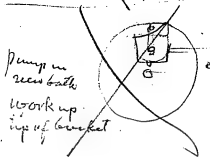 pump in
new bath
work up
up of bucket